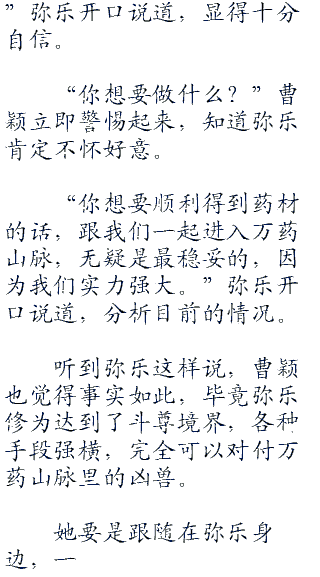 ”弥乐开口说道，显得十分
自信。
“你想要做什么？”曹
颖立即警惕起来，知道弥乐
肯定不怀好意。
“你想要顺利得到药材
的话，跟我们一起进入万药
山脉，无疑是最稳妥的，因
为我们实力强大。”弥乐开
口说道，分析目前的情况。
听到弥乐这样说，曹颖
也觉得事实如此，毕竟弥乐
修为达到了斗尊境界，各种
手段强横，完全可以对付万
药山脉里的凶兽。
她要是跟随在弥乐身
边，一